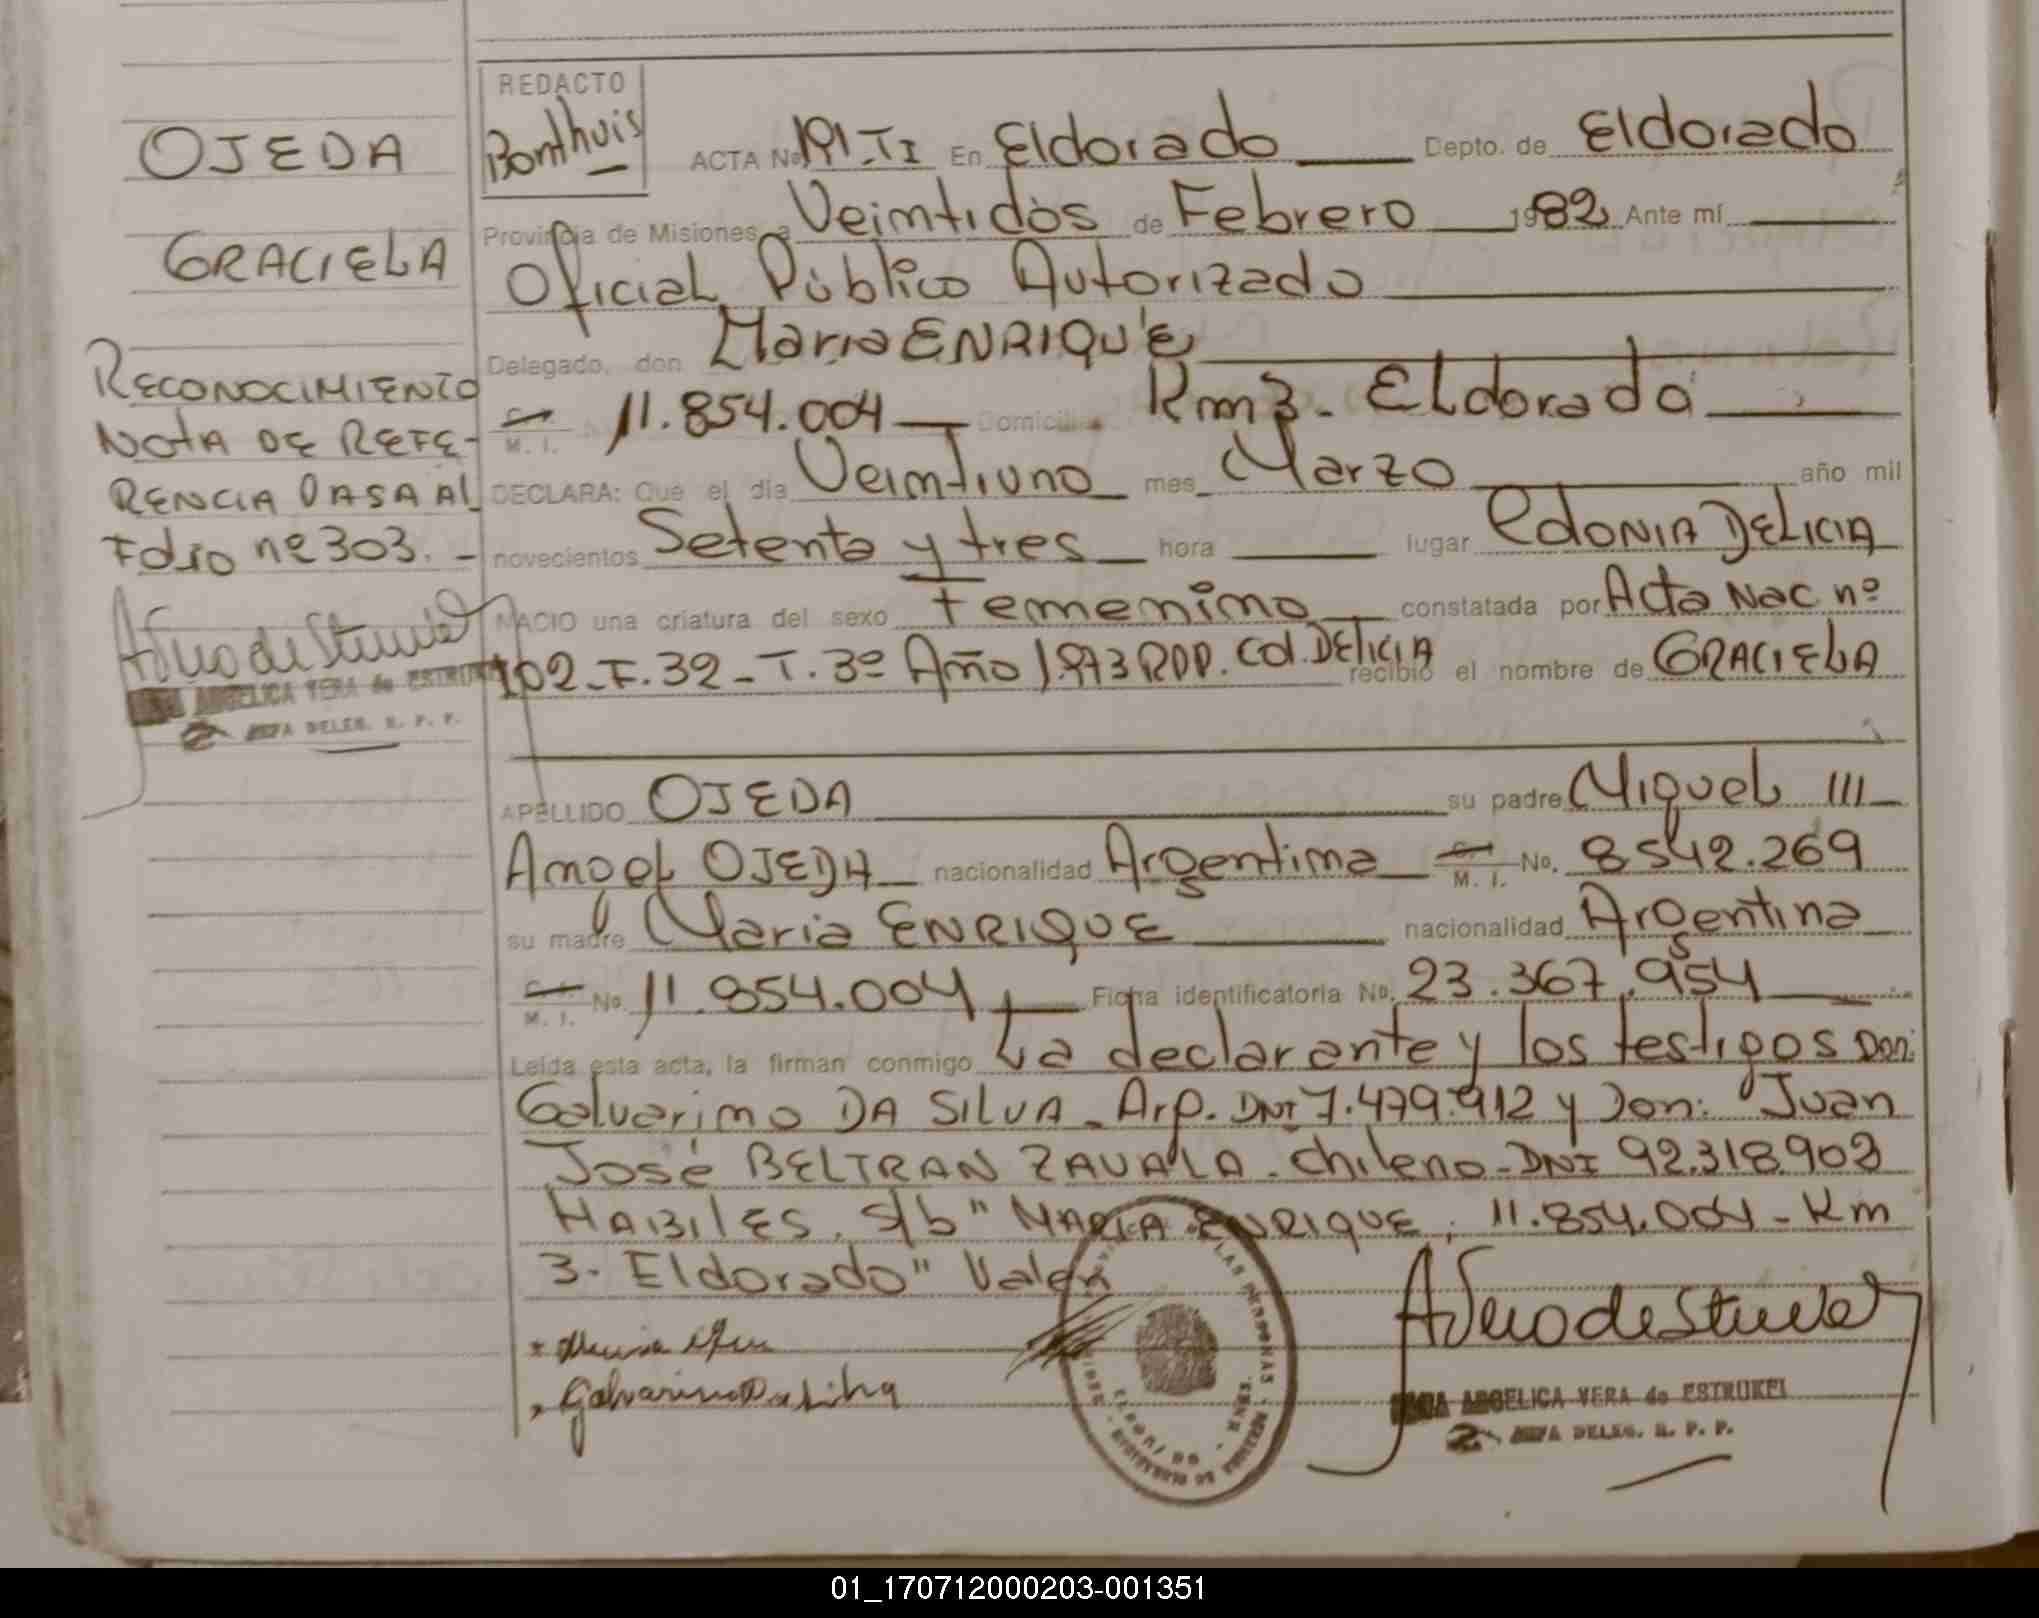 OJEDA
GRACIELA
RECONOCIMIENTO
NOTA DE REFE-
RENCIA PASA AL
Folio nº 303. -
ANGELICA VERA de
JEFA DELEG. R. P. P.
REDACTO
Bonthuis
ACTA No 191-TI En Eldorado Depto. de Eldorado
Provincia de Misiones a Veintidós de Febrero 1982 Ante mí
Oficial Público Autorizado
Delegado, don Maria ENRIQUE
M. I. 11.854.004 Domicilio Km 3. Eldorado
DECLARA: Que el día Veintiuno mes Marzo año mil
novecientos Setenta y tres hora lugar Colonia DELICIA
NACIO una criatura del sexo Femenino constatada por Acta Nac nº
102-F.32-T.3º Año 1.973 RPP. Col. DELICIA recibió el nombre de GRACIELA
APELLIDO OJEDA su padre Miguel III
Angel OJEDA nacionalidad Argentina M. I. No. 8542.269
su madre Maria ENRIQUE nacionalidad Argentina
M. I. No. 11.854.004 Ficha identificatoria No. 23.367.954
Leída esta acta, la firman conmigo La declarante y los testigos Don:
Galvarino DA SILVA - Arg. DNI 7.479.912 y Don: Juan
José BELTRAN ZAVALA - chileno - DNI 92.318.902
HABILES. S/b " MARIA ENRIQUE, 11.854.004 - Km
3. Eldorado" Valen
Galvarino Da Silva
ANGELICA VERA de ESTRUKEL
JEFA DELEG. R. P. P.
01_170712000203-001351